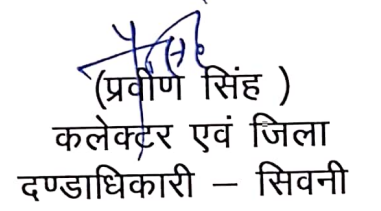 (प्रवीण सिंह )
कलेक्टर एवं जिला
दण्डाधिकारी – सिवनी